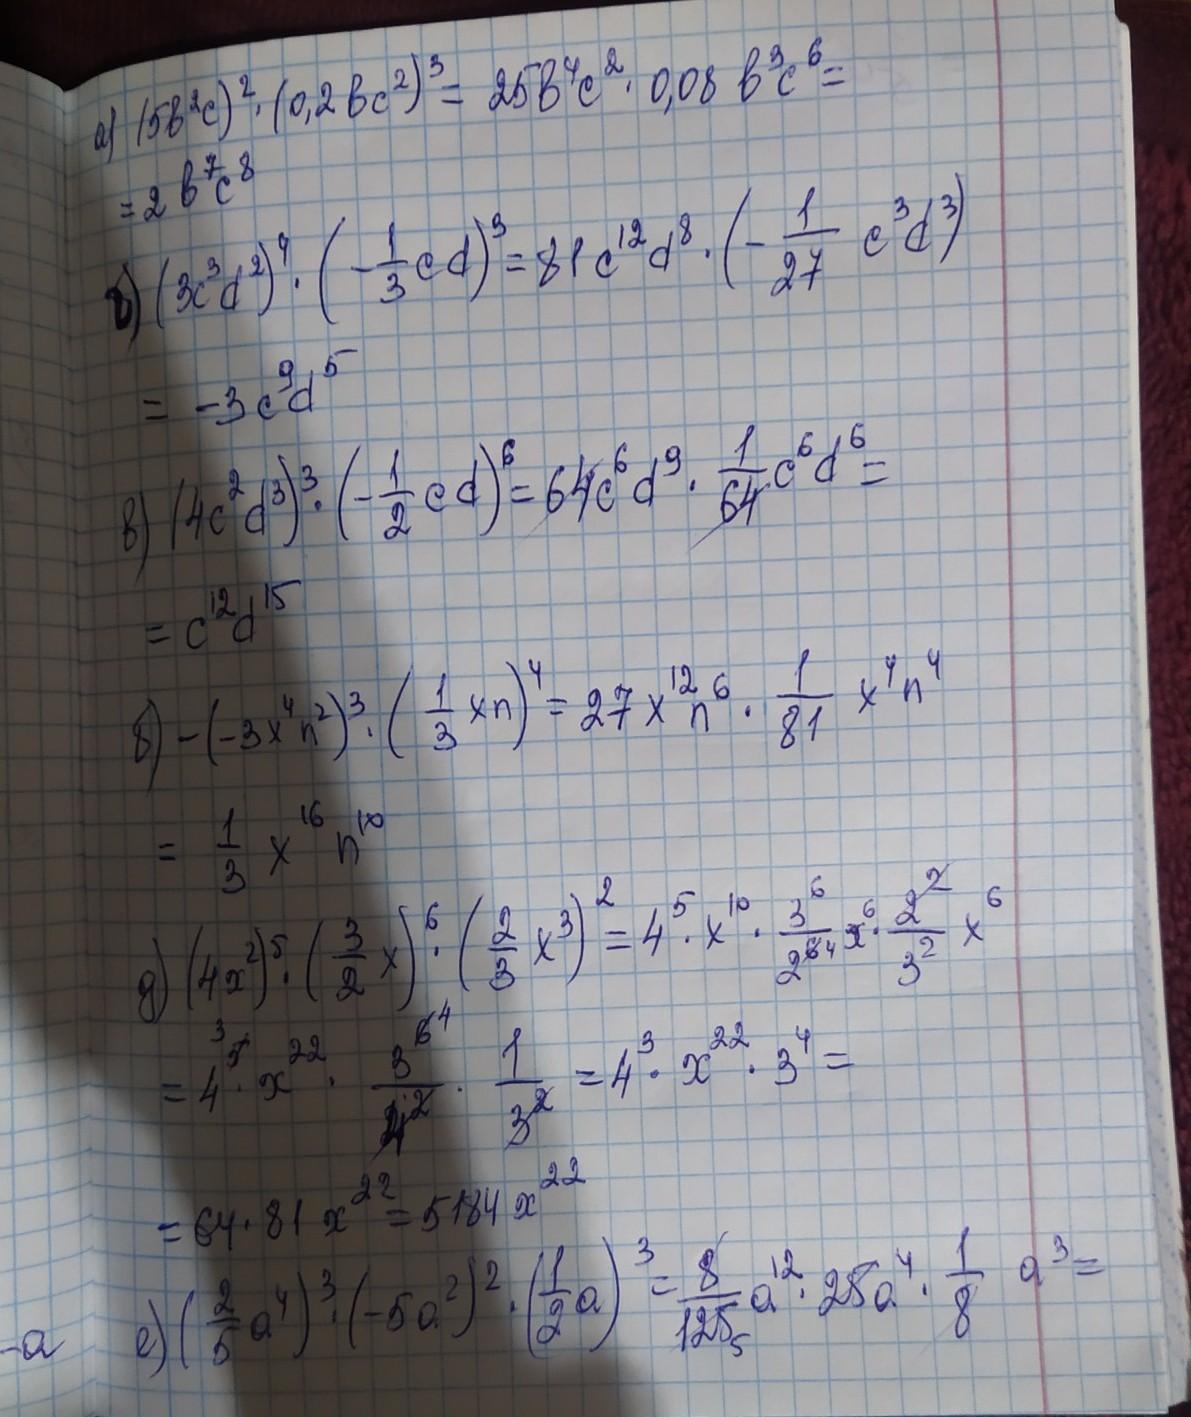 а) (5b²c)²·(0,2bc²)³ = 25b⁴c²·0,08 b³c⁶ =
= 2b⁷c⁸
б) (3c³d²)⁴·(-1/3 cd)³ = 81c¹²d⁸·(-1/27 c³d³)
= -3c⁹d⁵
в) (4c²d³)³·(-1/2 cd)⁶ = 64c⁶d⁹·1/64 c⁶d⁶ =
= c¹²d¹⁵
б) -(-3x⁴n²)³·(1/3 xn)⁴ = 27x¹²n⁶·1/81 x⁴n⁴
= 1/3 x¹⁶ n¹⁰
д) (4x²)⁵·(3/2 x)⁶·(2/3 x³)² = 4⁵·x¹⁰·3⁶/2⁶⁴ x⁶·2²/3² x⁶
= 4⁵³·x²²·3⁶⁴/4²·1/3² = 4³·x²²·3⁴ =
= 64·81x²² = 5184x²²
е) (2/5 a⁴)³·(-5a²)²·(1/2 a)³ = 8/125₅ a¹²·25a⁴·1/8 a³ =
-a